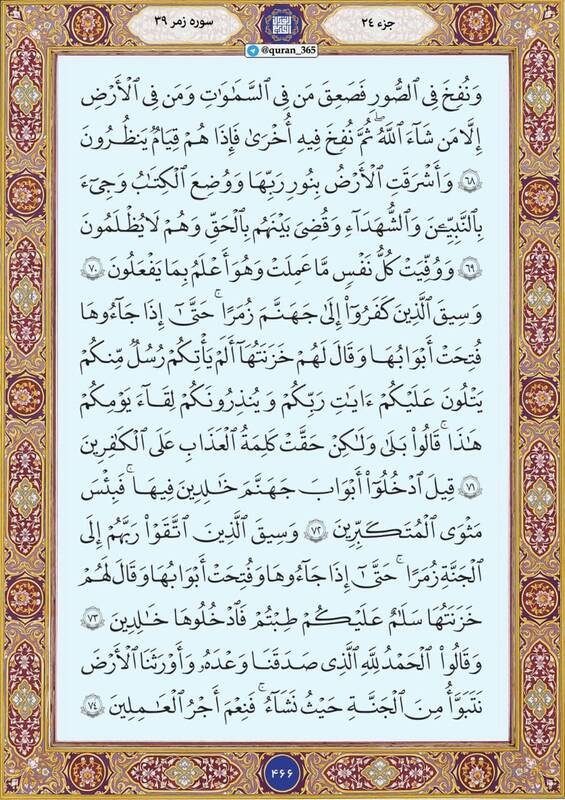 جزء ۲۴
سوره زمر ۳۹
@quran_365
وَنُفِخَ فِي ٱلصُّورِ فَصَعِقَ مَن فِي ٱلسَّمَٰوَٰتِ وَمَن فِي ٱلْأَرْضِ
إِلَّا مَن شَآءَ ٱللَّهُ ۖ ثُمَّ نُفِخَ فِيهِ أُخْرَىٰ فَإِذَا هُمْ قِيَامٌ يَنظُرُونَ
۶۸ وَأَشْرَقَتِ ٱلْأَرْضُ بِنُورِ رَبِّهَا وَوُضِعَ ٱلْكِتَٰبُ وَجِيءَ
بِٱلنَّبِيِّـۧنَ وَٱلشُّهَدَآءِ وَقُضِيَ بَيْنَهُم بِٱلْحَقِّ وَهُمْ لَا يُظْلَمُونَ
۶۹ وَوُفِّيَتْ كُلُّ نَفْسٍ مَّا عَمِلَتْ وَهُوَ أَعْلَمُ بِمَا يَفْعَلُونَ ۷۰
وَسِيقَ ٱلَّذِينَ كَفَرُوٓا۟ إِلَىٰ جَهَنَّمَ زُمَرًا ۖ حَتَّىٰٓ إِذَا جَآءُوهَا
فُتِحَتْ أَبْوَٰبُهَا وَقَالَ لَهُمْ خَزَنَتُهَآ أَلَمْ يَأْتِكُمْ رُسُلٌ مِّنكُمْ
يَتْلُونَ عَلَيْكُمْ ءَايَٰتِ رَبِّكُمْ وَيُنذِرُونَكُمْ لِقَآءَ يَوْمِكُمْ
هَٰذَا ۚ قَالُوا۟ بَلَىٰ وَلَٰكِنْ حَقَّتْ كَلِمَةُ ٱلْعَذَابِ عَلَى ٱلْكَٰفِرِينَ
۷۱ قِيلَ ٱدْخُلُوٓا۟ أَبْوَٰبَ جَهَنَّمَ خَٰلِدِينَ فِيهَا ۖ فَبِئْسَ
مَثْوَى ٱلْمُتَكَبِّرِينَ ۷۲ وَسِيقَ ٱلَّذِينَ ٱتَّقَوْا۟ رَبَّهُمْ إِلَى
ٱلْجَنَّةِ زُمَرًا ۖ حَتَّىٰٓ إِذَا جَآءُوهَا وَفُتِحَتْ أَبْوَٰبُهَا وَقَالَ لَهُمْ
خَزَنَتُهَا سَلَٰمٌ عَلَيْكُمْ طِبْتُمْ فَٱدْخُلُوهَا خَٰلِدِينَ ۷۳
وَقَالُوا۟ ٱلْحَمْدُ لِلَّهِ ٱلَّذِي صَدَقَنَا وَعْدَهُۥ وَأَوْرَثَنَا ٱلْأَرْضَ
نَتَبَوَّأُ مِنَ ٱلْجَنَّةِ حَيْثُ نَشَآءُ ۖ فَنِعْمَ أَجْرُ ٱلْعَٰمِلِينَ ۷۴
۴۶۶